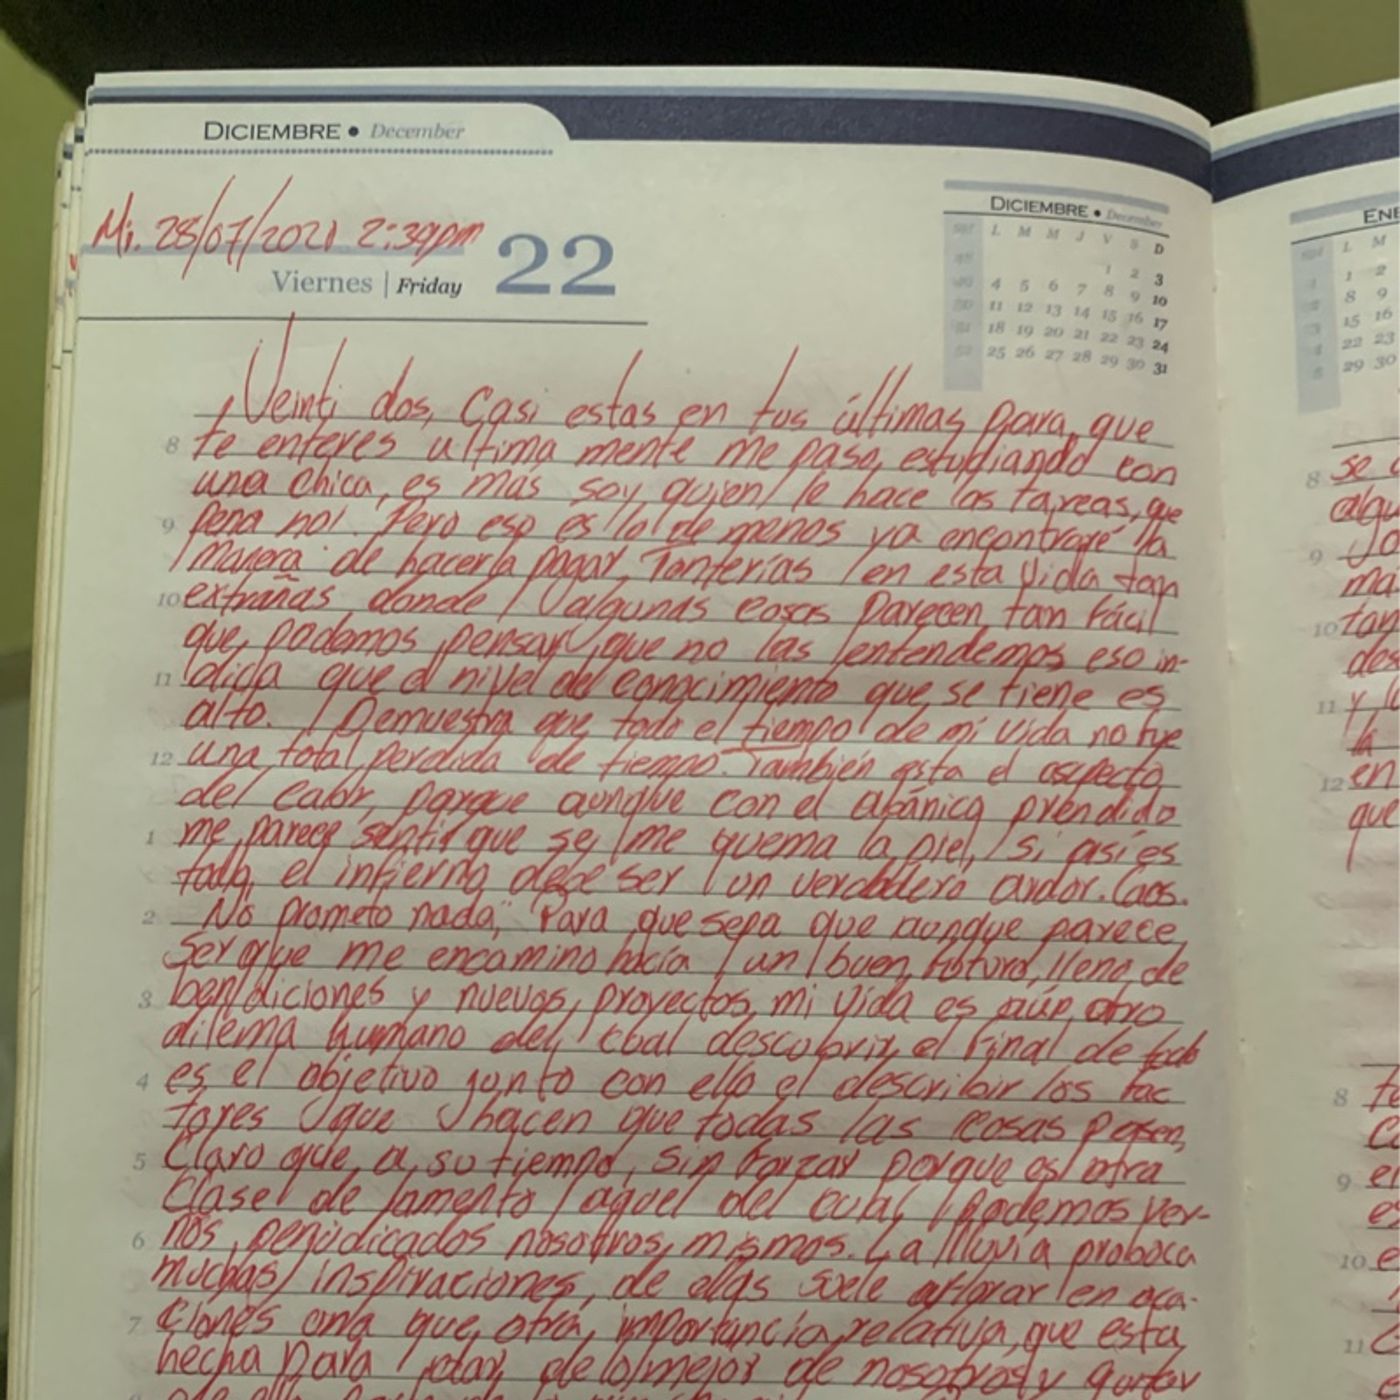 DICIEMBRE • December
Mi. 28/07/2021 2:39pm
Viernes | Friday 22
DICIEMBRE • December
L M M J V S D
1 2 3
4 5 6 7 8 9 10
11 12 13 14 15 16 17
18 19 20 21 22 23 24
25 26 27 28 29 30 31
Veinti dos, Casi estas en tus últimas para que
8 te enteres ultima mente me paso estudiando con
una chica, es mas soy quien le hace las tareas, que
9 pena no! Pero eso es lo de menos ya encontraré la
manera de hacerla pagar, Tonterías en esta vida tan
10 extrañas donde algunas cosas parecen tan fácil
que podemos pensar que no las entendemos eso in-
11 dica que el nivel del conocimiento que se tiene es
alto. Demuestra que todo el tiempo de mi vida no fue
12 una total perdida de tiempo. También esta el aspecto
del calor, porque aunque con el abánico prendido
1 me parece sentir que se me quema la piel, si asi es
todo, el infierno debe ser un verdadero ardor. Caos.
2 No prometo nada, Para que sepa que aunque parece
ser que me encamino hacia un buen futuro, lleno de
3 bendiciones y nuevos proyectos, mi vida es aún otro
dilema humano del cual descubrir el final de todo
4 es el objetivo junto con ello el describir los fac
tores que hacen que todas las cosas pasen,
5 Claro que, a su tiempo, sin forzar porque es otra
clase de lamento aquel del cual podemos ver-
6 nos perjudicados nosotros mismos. La lluvia proboca
muchas inspiraciones, de ellas suele aflorar en oca-
7 ciones una que otra, importancia relativa, que esta
hecha para de lo mejor de nosotros y
ENE
L M
1 2
8 9
15 16
22 23
29 30
8 se
algu
9
ma
10
des
11 y
la
12 en
que
8
9
10
11